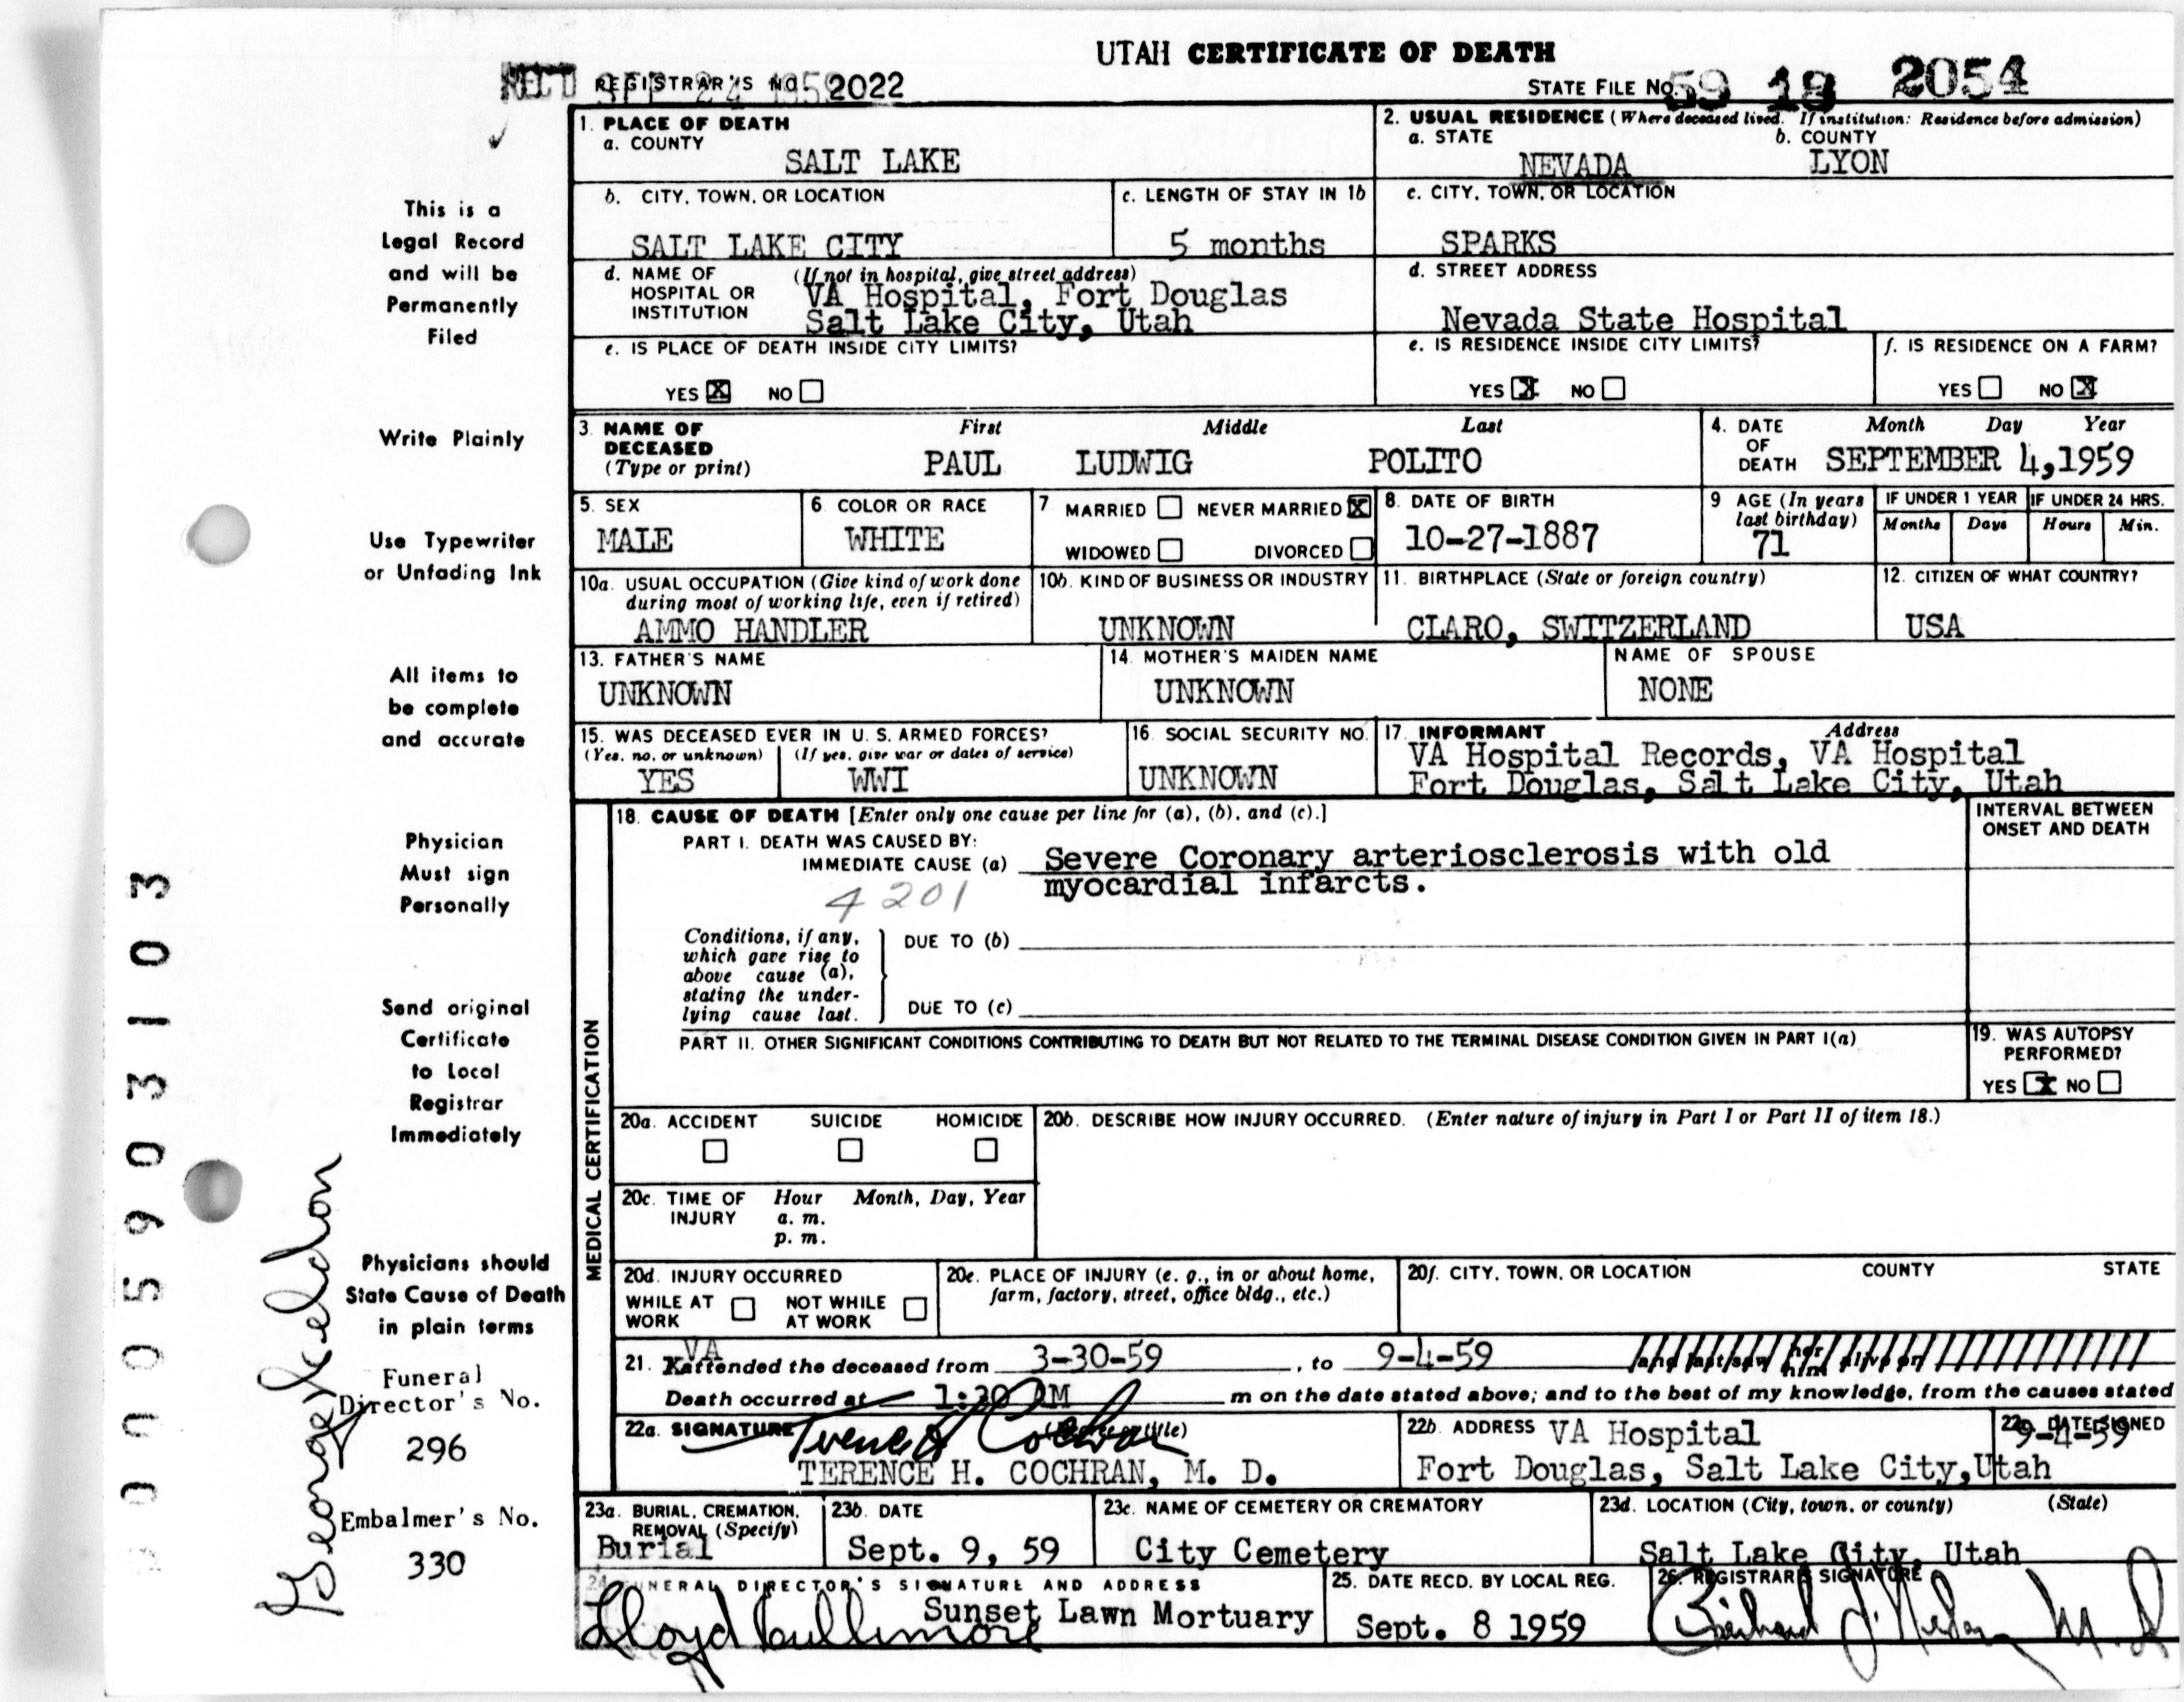 UTAH CERTIFICATE OF DEATH
REC'D SEP 24 1959
REGISTRAR'S NO. 2022
STATE FILE NO. 59 18 2054
1. PLACE OF DEATH
a. COUNTY
SALT LAKE
2. USUAL RESIDENCE (Where deceased lived. If institution: Residence before admission)
a. STATE b. COUNTY
NEVADA LYON
b. CITY, TOWN, OR LOCATION
SALT LAKE CITY
c. LENGTH OF STAY IN 1b
5 months
c. CITY, TOWN, OR LOCATION
SPARKS
d. NAME OF HOSPITAL OR INSTITUTION (If not in hospital, give street address)
VA Hospital, Fort Douglas
Salt Lake City, Utah
d. STREET ADDRESS
Nevada State Hospital
e. IS PLACE OF DEATH INSIDE CITY LIMITS?
YES X NO
e. IS RESIDENCE INSIDE CITY LIMITS?
YES X NO
f. IS RESIDENCE ON A FARM?
YES NO X
3. NAME OF DECEASED (Type or print)
First Middle Last
PAUL LUDWIG POLITO
4. DATE OF DEATH
Month Day Year
SEPTEMBER 4,1959
5. SEX
MALE
6. COLOR OR RACE
WHITE
7. MARRIED NEVER MARRIED X
WIDOWED DIVORCED
8. DATE OF BIRTH
10-27-1887
9. AGE (In years last birthday)
71
IF UNDER 1 YEAR
Months Days
IF UNDER 24 HRS.
Hours Min.
10a. USUAL OCCUPATION (Give kind of work done during most of working life, even if retired)
AMMO HANDLER
10b. KIND OF BUSINESS OR INDUSTRY
UNKNOWN
11. BIRTHPLACE (State or foreign country)
CLARO, SWITZERLAND
12. CITIZEN OF WHAT COUNTRY?
USA
13. FATHER'S NAME
UNKNOWN
14. MOTHER'S MAIDEN NAME
UNKNOWN
NAME OF SPOUSE
NONE
15. WAS DECEASED EVER IN U. S. ARMED FORCES?
(Yes, no, or unknown) (If yes, give war or dates of service)
YES WWI
16. SOCIAL SECURITY NO.
UNKNOWN
17. INFORMANT Address
VA Hospital Records, VA Hospital
Fort Douglas, Salt Lake City, Utah
MEDICAL CERTIFICATION
18. CAUSE OF DEATH [Enter only one cause per line for (a), (b), and (c).]
INTERVAL BETWEEN ONSET AND DEATH
PART I. DEATH WAS CAUSED BY:
IMMEDIATE CAUSE (a) Severe Coronary arteriosclerosis with old
myocardial infarcts.
4201
Conditions, if any, which gave rise to above cause (a), stating the underlying cause last.
DUE TO (b)
DUE TO (c)
PART II. OTHER SIGNIFICANT CONDITIONS CONTRIBUTING TO DEATH BUT NOT RELATED TO THE TERMINAL DISEASE CONDITION GIVEN IN PART I(a)
19. WAS AUTOPSY PERFORMED?
YES X NO
20a. ACCIDENT SUICIDE HOMICIDE
20b. DESCRIBE HOW INJURY OCCURRED. (Enter nature of injury in Part I or Part II of item 18.)
20c. TIME OF INJURY Hour Month, Day, Year
a. m.
p. m.
20d. INJURY OCCURRED
WHILE AT WORK NOT WHILE AT WORK
20e. PLACE OF INJURY (e. g., in or about home, farm, factory, street, office bldg., etc.)
20f. CITY, TOWN, OR LOCATION COUNTY STATE
21. VA attended the deceased from 3-30-59, to 9-4-59 and last saw her him alive on
Death occurred at 1:30 AM m on the date stated above; and to the best of my knowledge, from the causes stated
22a. SIGNATURE (Degree or title)
Terence H Cochran
TERENCE H. COCHRAN, M. D.
22b. ADDRESS VA Hospital
Fort Douglas, Salt Lake City,Utah
22c. DATE SIGNED
9-4-59
23a. BURIAL, CREMATION, REMOVAL (Specify)
Burial
23b. DATE
Sept. 9, 59
23c. NAME OF CEMETERY OR CREMATORY
City Cemetery
23d. LOCATION (City, town, or county) (State)
Salt Lake City, Utah
24. FUNERAL DIRECTOR'S SIGNATURE AND ADDRESS
Lloyd Cullimore
Sunset Lawn Mortuary
25. DATE RECD. BY LOCAL REG.
Sept. 8 1959
26. REGISTRAR'S SIGNATURE
This is a
Legal Record
and will be
Permanently
Filed
Write Plainly
Use Typewriter
or Unfading Ink
All items to
be complete
and accurate
Physician
Must sign
Personally
Send original
Certificate
to Local
Registrar
Immediately
Physicians should
State Cause of Death
in plain terms
Funeral
Director's No.
296
Embalmer's No.
330
George
0005903103